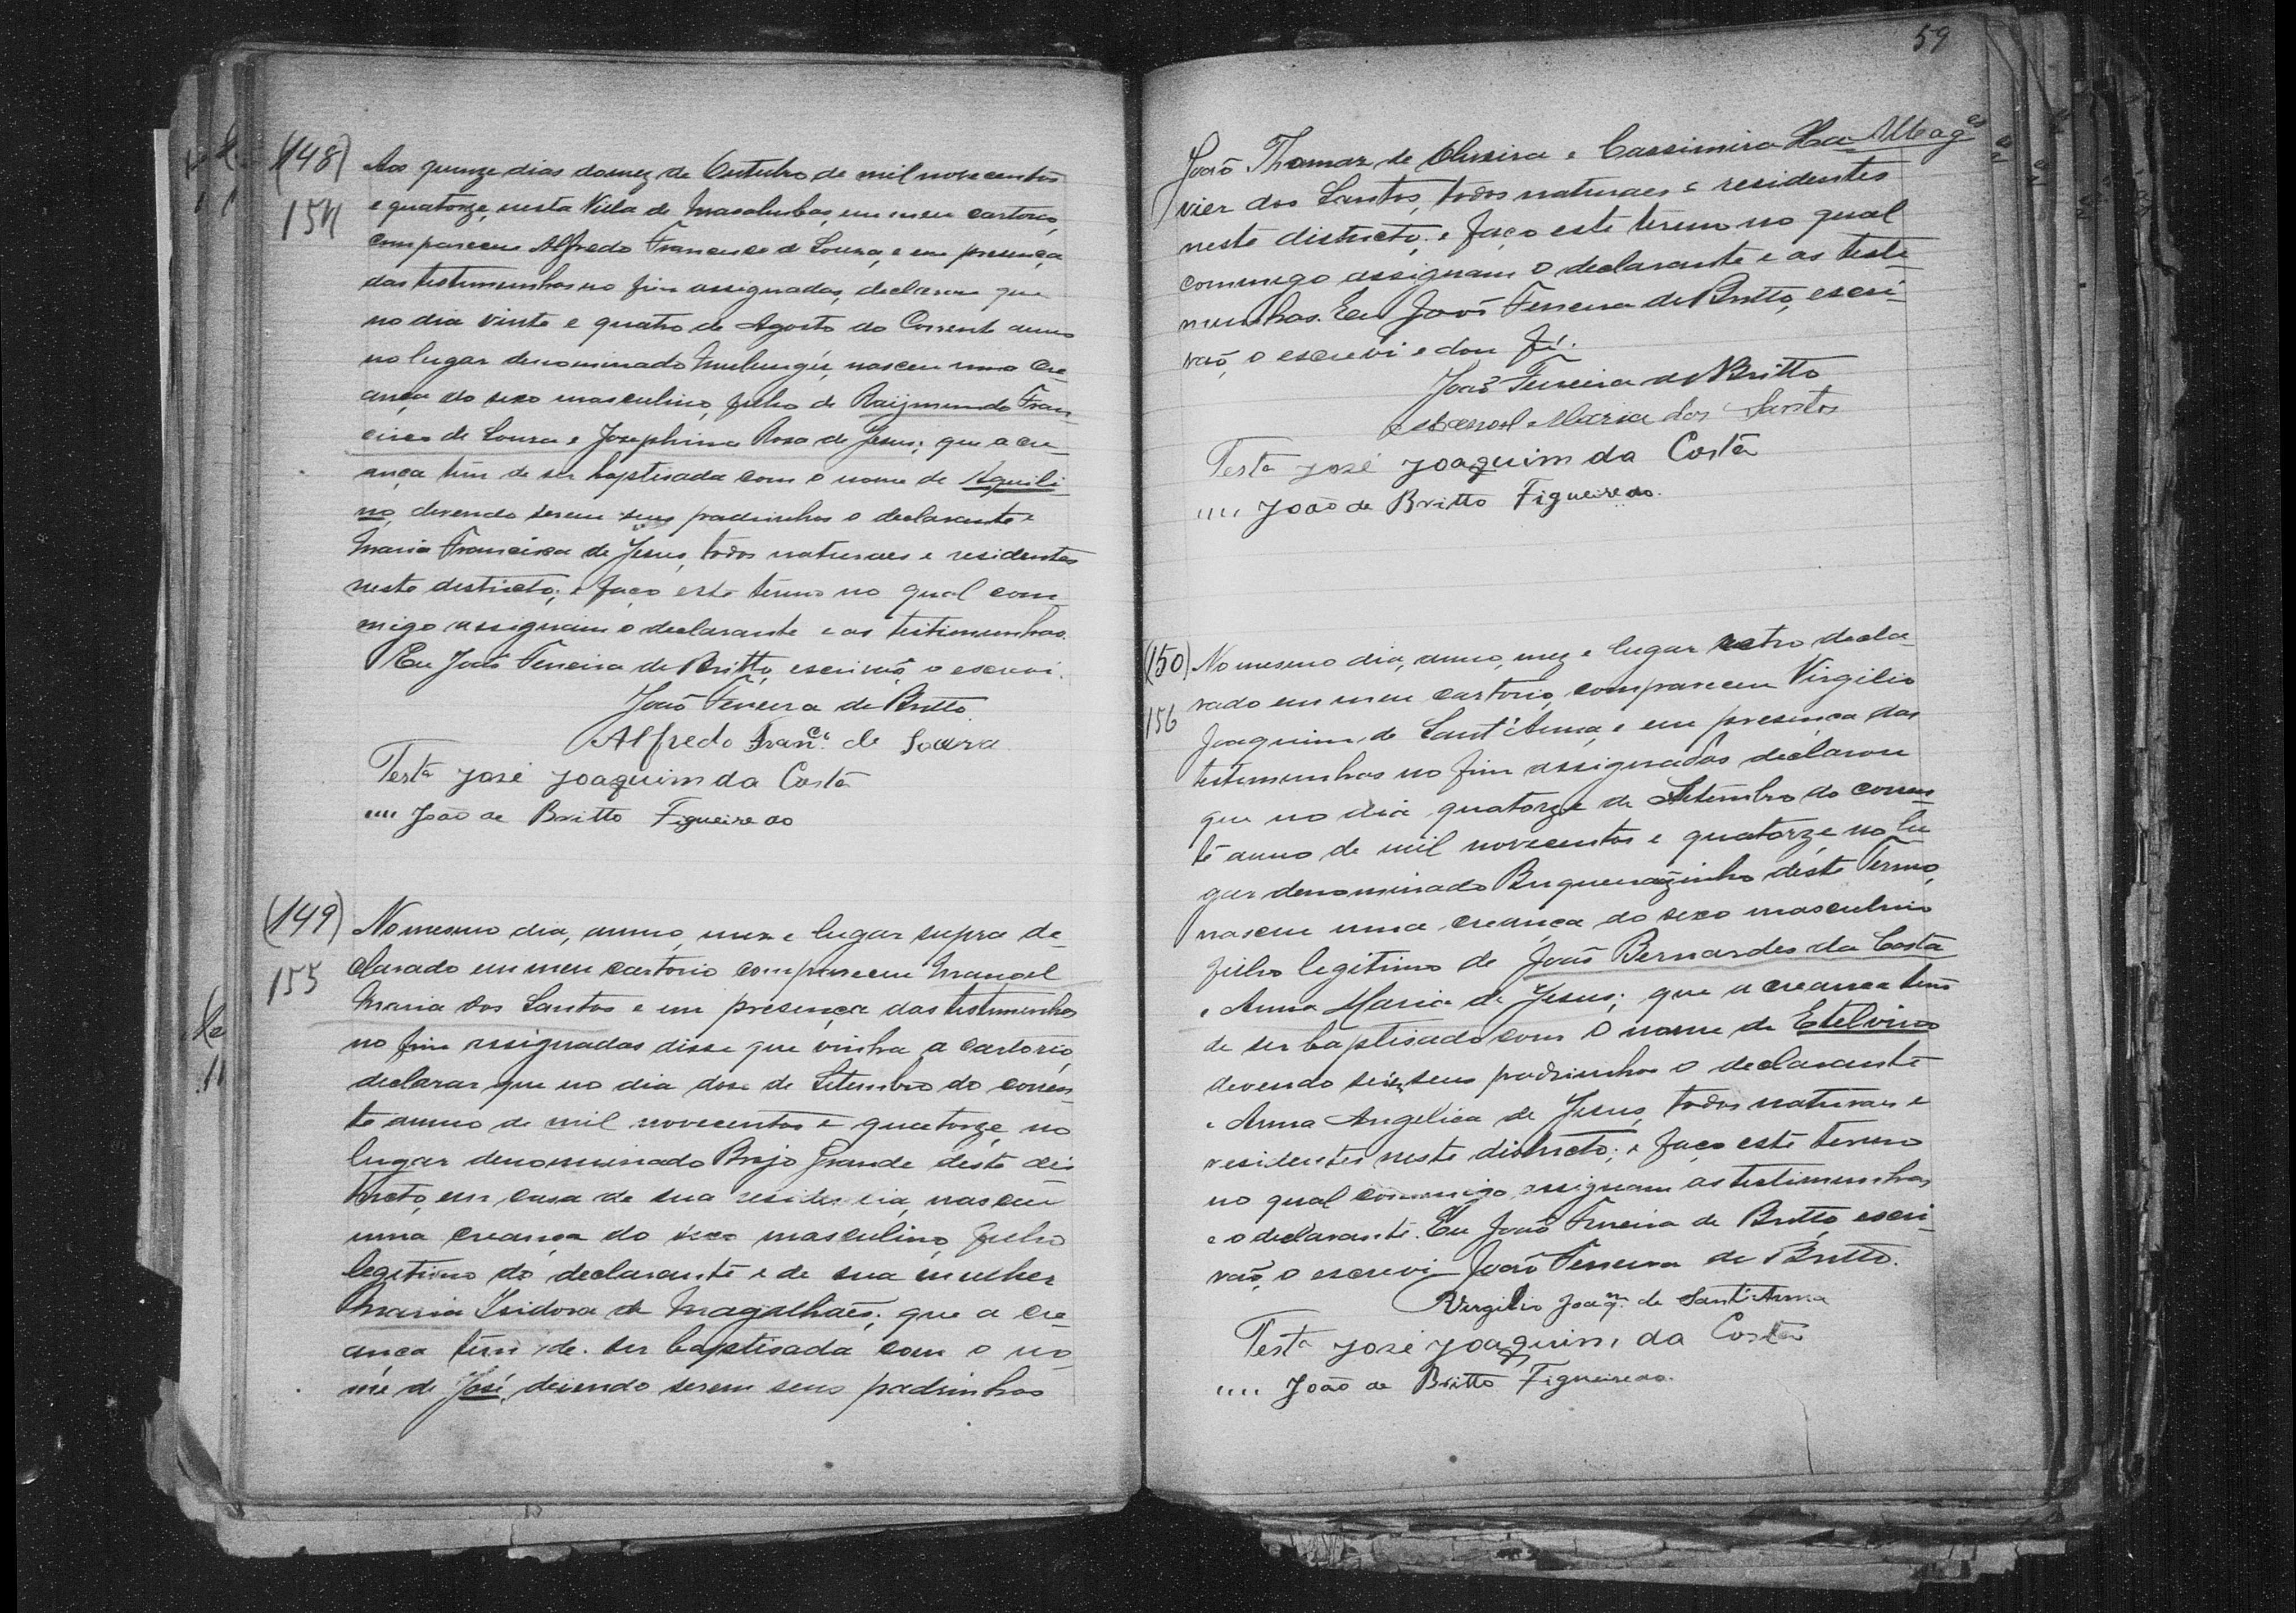 (148)
154
Aos quinze dias do mez de Outubro de mil novecentos
e quatorze, nesta Villa de Macahubas, em meu cartorio,
compareceu Alfredo Francisco de Souza, e em presença
das testemunhas no fim assignadas, declarou que
no dia vinte e quatro de Agosto do Corrente anno
no lugar denominado Mulungú, nasceu uma cre-
ança do sexo masculino, filho de Raijmundo Fran
cisco de Souza e Josephina Rosa de Jesus; que a cre-
ança tem de ser baptisada com o nome de Aquili-
no, devendo serem seus padrinhos o declarante e
Maria Francisca de Jesus, todos naturaes e residentes
neste districto; e faço este termo no qual com-
migo assignam o declarante e as testemunhas.
Eu João Ferreira de Britto, escrivão o escrevi.
João Ferreira de Britto
Alfredo Franco. de Souza
Testa José Joaquim da Costa
"" João de Britto Figueiredo
(149)
155
No mesmo dia, anno, mez e lugar supra de-
clarado em meu cartorio compareceu Manoel
Maria dos Santos e em presença das testemunhas
no fim assignadas disse que vinha a cartorio,
declarar que no dia doze de Setembro do corren-
te anno de mil novecentos e quatorze, no
lugar denominado Brejo Grande deste dis-
tricto, em casa de sua residencia, nasceu
uma creança do sexo masculino, filho
legitimo do declarante e de sua mulher
Maria Isidora de Magalhaẽs; que a cre-
ança tem de ser baptisada com o no-
me de José, devendo serem seus padrinhos
59
João Thomaz de Oliveira e Cassimira Xa- Mag
vier dos Santos, todos naturaes e residentes
neste districto; e faço este termo no qual
commigo assignam o declarante e as teste-
munhas. Eu João Ferreira de Britto, escri-
vão, o escrevi e dou fé.
João Ferreira de Britto
Manoel Maria dos Santos
Testa José Joaquim da Costa
"" João de Britto Figueiredo.
(150)
156
No mesmo dia, anno, mez e lugar retro decla-
rado em meu cartorio, compareceu Virgilio
Joaquim de Sant'Anna, e em presença das
testemunhas no fim assignadas declarou
que no dia quatorze de Setembro do corren-
te anno de mil novecentos e quatorze, no lu
gar denominado Buquerãozinho déste Termo,
nasceu uma creança do sexo masculino
filho legitimo de João Bernardes da Costa
e Anna Maria de Jesus; que a creança tem
de ser baptisado com o nome de Etelvino
devendo ser seus padrinhos o declarante
e Anna Angelica de Jesus, todos naturaes e
residentes neste districto; e faço este termo
no qual commigo assignam as testemunhas
e o declarante. Eu João Ferreira de Britto, escri-
vão, o escrevi João Ferreira de Britto.
Virgilio Joaqm. de Sant'Anna
Testa José Joaquim da Costa
"" João de Britto Figueiredo.